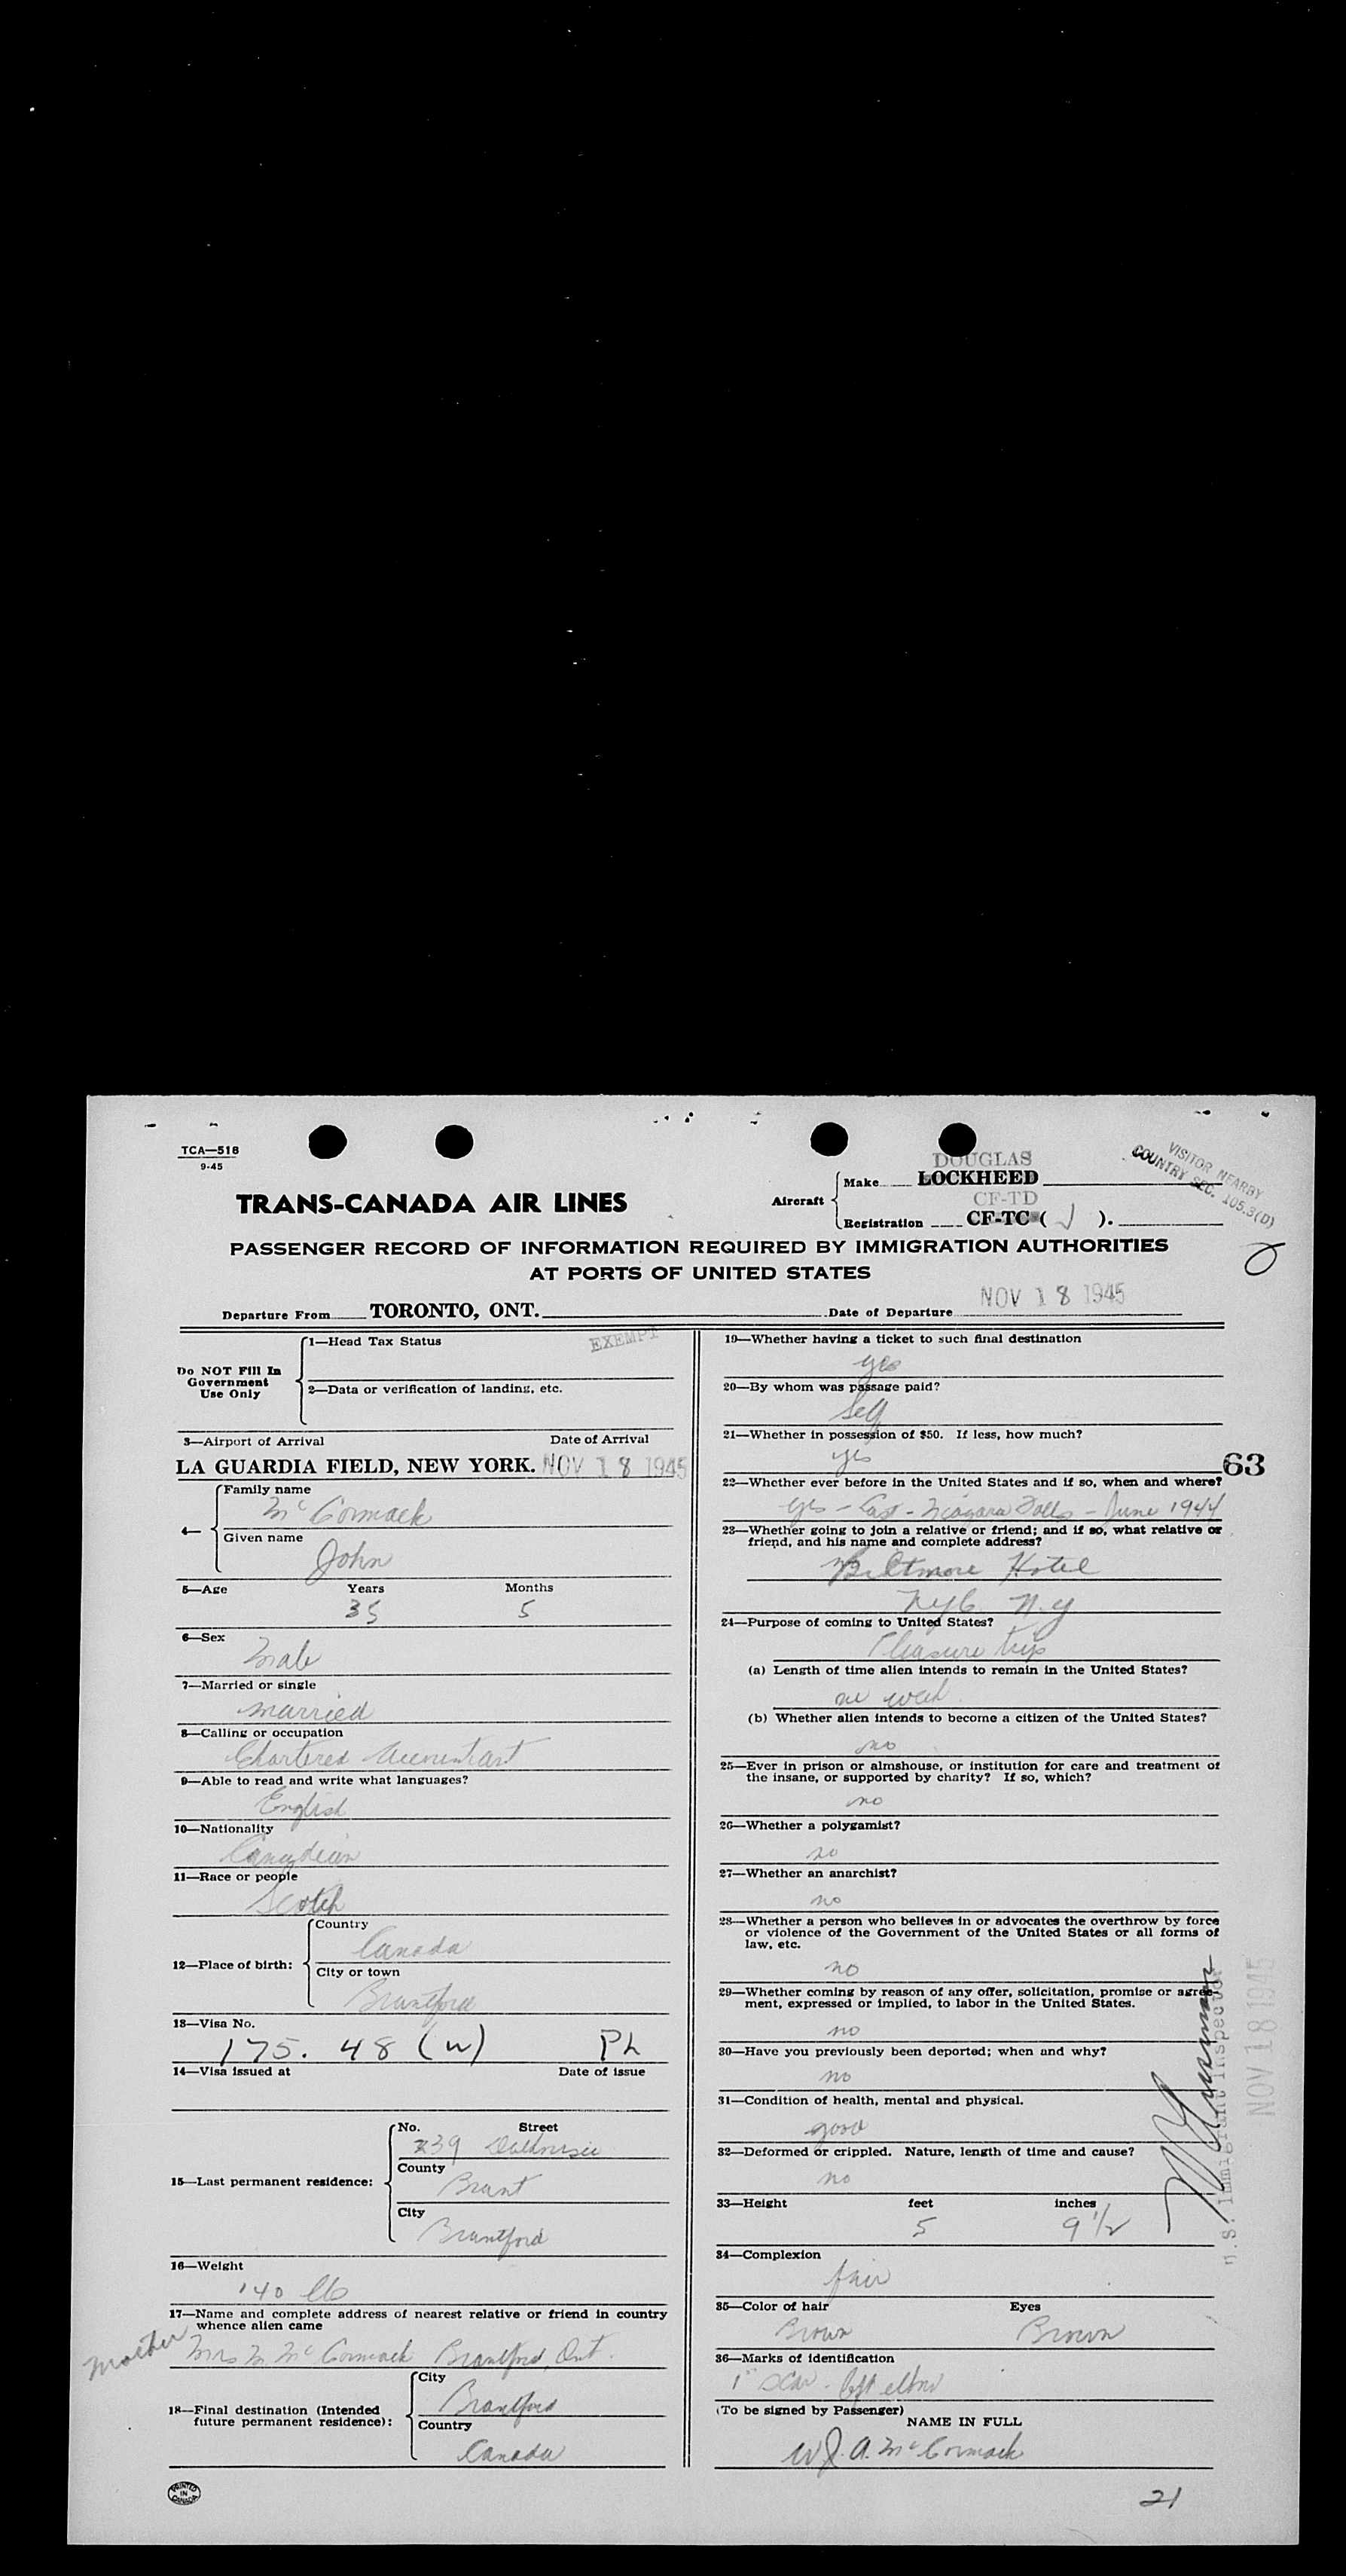 TCA—518
9-45
DOUGLAS
VISITOR NEARBY
COUNTRY SEC. 105.3(D)
TRANS-CANADA AIR LINES
Aircraft
Make LOCKHEED
CF-TD
Registration CF-TC ( J ).
PASSENGER RECORD OF INFORMATION REQUIRED BY IMMIGRATION AUTHORITIES
AT PORTS OF UNITED STATES
Departure From TORONTO, ONT. Date of Departure NOV 18 1945
Do NOT Fill In
Government
Use Only
1—Head Tax Status EXEMPT
2—Data or verification of landing, etc.
3—Airport of Arrival Date of Arrival
LA GUARDIA FIELD, NEW YORK. NOV 18 1945
4— Family name
McCormack
Given name
John
5—Age Years Months
35 5
6—Sex
Male
7—Married or single
married
8—Calling or occupation
Chartered Accountant
9—Able to read and write what languages?
English
10—Nationality
Canadian
11—Race or people
Scotch
12—Place of birth: Country
Canada
City or town
Brantford
13—Visa No.
175. 48 (w) Ph
14—Visa issued at Date of issue
15—Last permanent residence: No. Street
239 Dalhousie
County
Brant
City
Brantford
16—Weight
140 lb
17—Name and complete address of nearest relative or friend in country
whence alien came
Mother Mrs M. McCormack Brantford, Ont.
18—Final destination (Intended
future permanent residence): City
Brantford
Country
Canada
PRINTED
IN
CANADA
19—Whether having a ticket to such final destination
yes
20—By whom was passage paid?
Self
21—Whether in possession of $50. If less, how much?
yes
63
22—Whether ever before in the United States and if so, when and where?
yes - Last - Niagara Falls - June 1944
23—Whether going to join a relative or friend; and if so, what relative or
friend, and his name and complete address?
Biltmore Hotel
NYC. N.Y
24—Purpose of coming to United States?
Pleasure trip
(a) Length of time alien intends to remain in the United States?
one week
(b) Whether alien intends to become a citizen of the United States?
no
25—Ever in prison or almshouse, or institution for care and treatment of
the insane, or supported by charity? If so, which?
no
26—Whether a polygamist?
no
27—Whether an anarchist?
no
28—Whether a person who believes in or advocates the overthrow by force
or violence of the Government of the United States or all forms of
law, etc.
no
29—Whether coming by reason of any offer, solicitation, promise or agree-
ment, expressed or implied, to labor in the United States.
no
30—Have you previously been deported; when and why?
no
31—Condition of health, mental and physical.
good
32—Deformed or crippled. Nature, length of time and cause?
no
33—Height feet inches
5 9 1/2
34—Complexion
fair
35—Color of hair Eyes
Brown Brown
36—Marks of identification
1" scar - left elbow
(To be signed by Passenger)
NAME IN FULL
W J. A. McCormack
21
U.S. Immigrant Inspector
NOV 18 1945